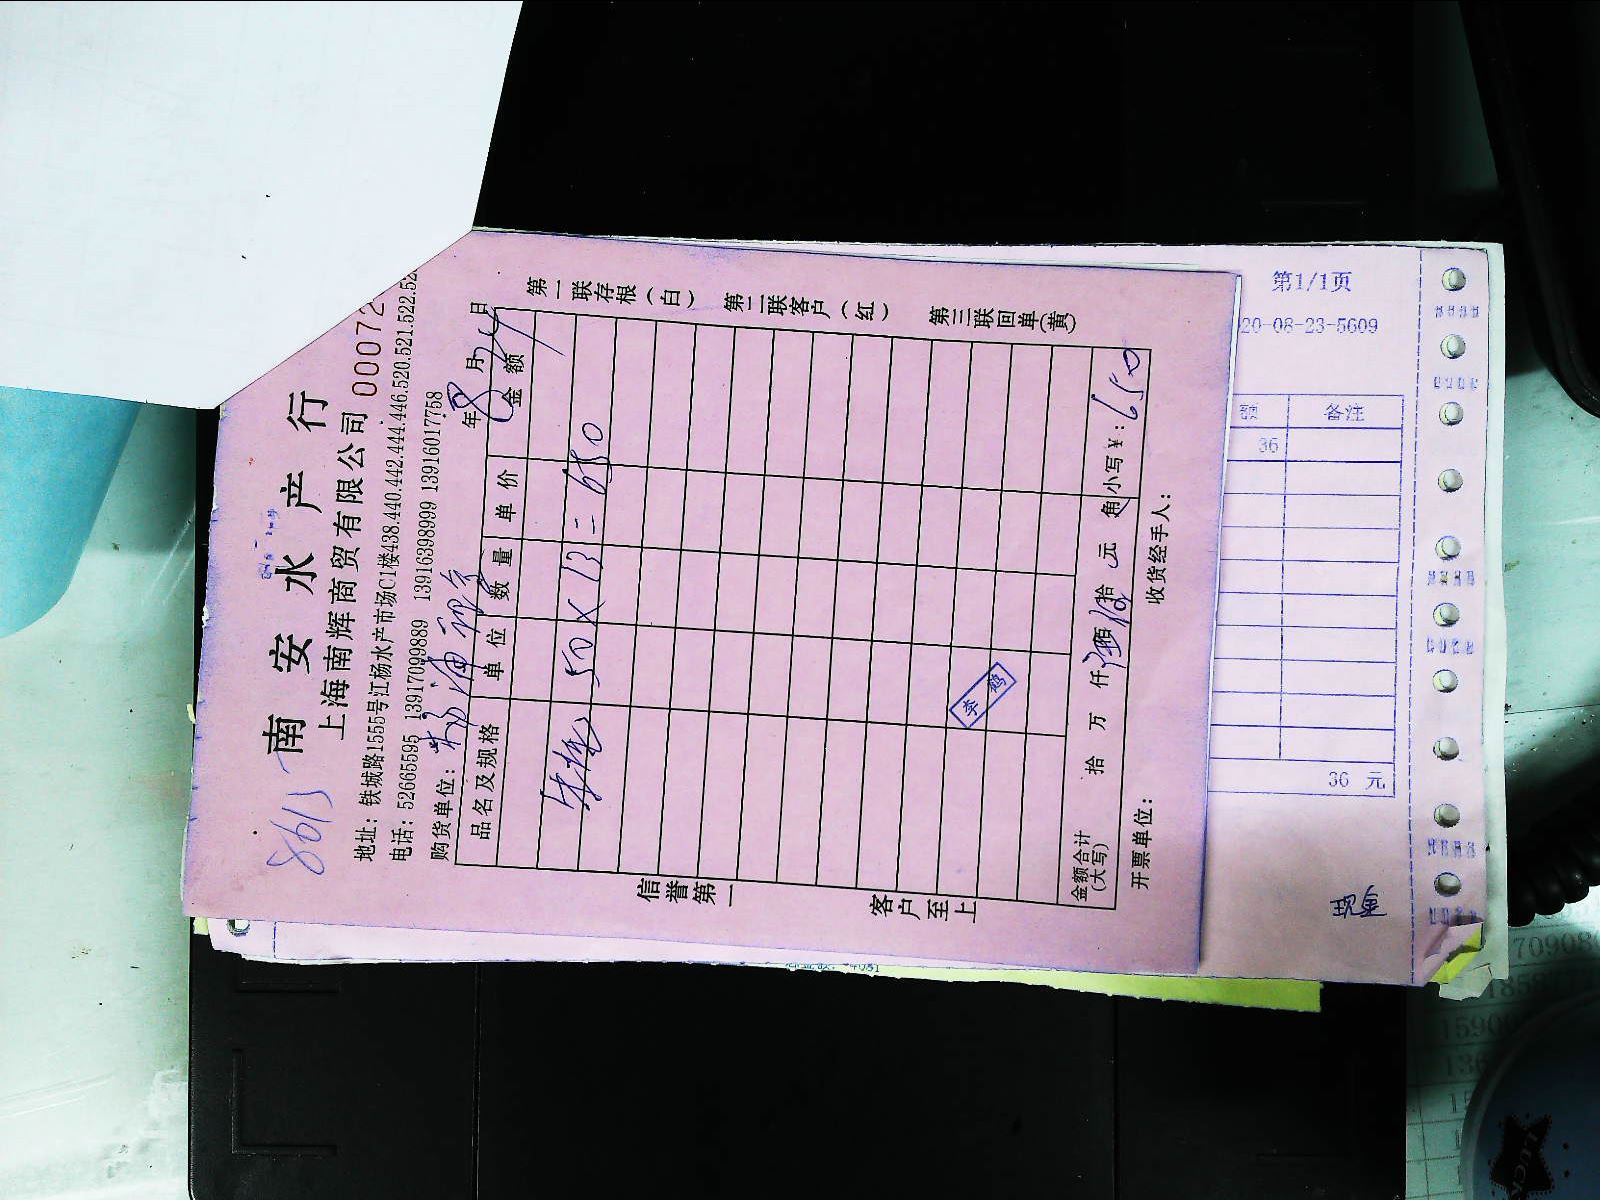 8613
南安水产行
上海南辉商贸有限公司
00072
地址：铁城路1555号江杨水产市场C1楼438.440.442.444.446.520.521.522.52
电话：52665595 13917099889 13916398999 13916017758
购货单位：
年 8 月 24 日
品名及规格 单位 数量 单价 金额
50×13=650
李 鹅
金额合计（大写） 拾 万 仟 佰 拾 元 角 小写￥：650
开票单位： 收货经手人：
信誉第一 客户至上
第一联存根（白） 第二联客户（红） 第三联回单（黄）
第1/1页
20-08-23-5609
备注
36
36 元
现金
70908